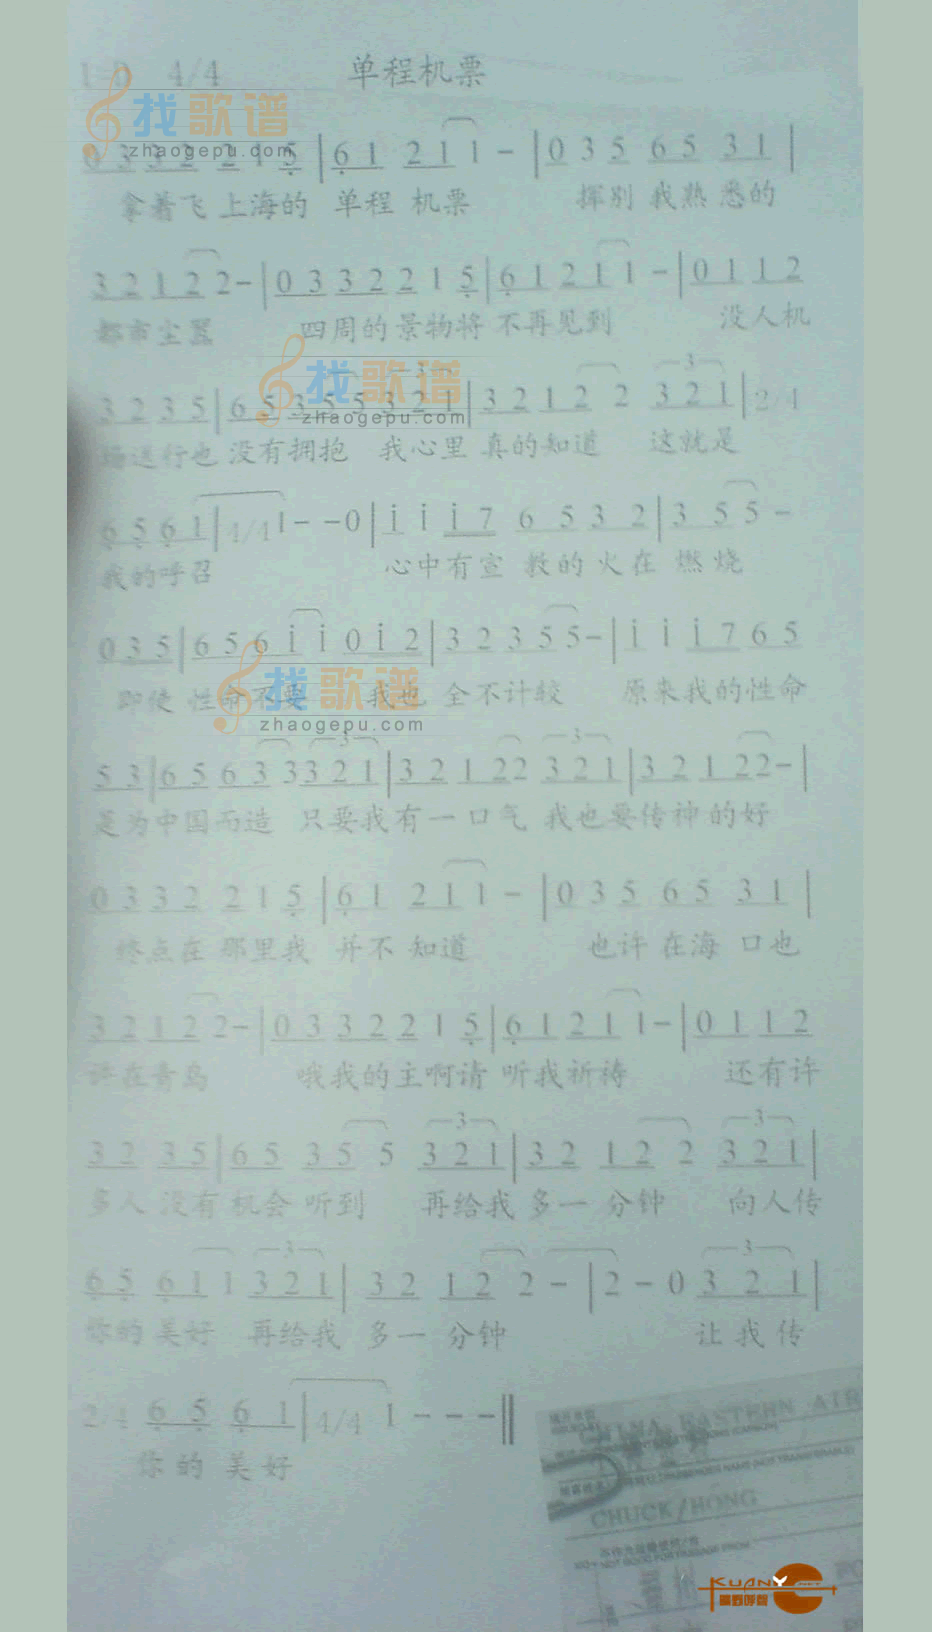 4/4 单程机票
找歌谱
zhaogepu.com
0 3 3 2 2 1 5 | 6 1 2 1 1 - | 0 3 5 6 5 3 1 |
拿着飞 上海的 单程 机票 挥别 我熟 悉的
3 2 1 2 2 - | 0 3 3 2 2 1 5 | 6 1 2 1 1 - | 0 1 1 2
都市尘嚣 四周的景物将 不再见到 没人机
找歌谱
zhaogepu.com
3 2 3 5 | 6 5 3 5 5 3 2 1 | 3 2 1 2 2 3 2 1 | 2/4
送行也 没有拥抱 我心里 真的知道 这就是
6 5 6 1 | 4/4 1 - - 0 | i i i 7 6 5 3 2 | 3 5 5 -
我的呼召 心中有宣 教的 火在 燃 烧
0 3 5 | 6 5 6 i i 0 i 2 | 3 2 3 5 5 - | i i i 7 6 5
即使 性命不要 我也 全不计较 原来我的性命
找歌谱
zhaogepu.com
5 3 | 6 5 6 3 3 3 2 1 | 3 2 1 2 2 3 2 1 | 3 2 1 2 2 - |
是为中国而造 只要我有一口气 我也要传神的好
0 3 3 2 2 1 5 | 6 1 2 1 1 - | 0 3 5 6 5 3 1 |
终点在 那里我 并不 知道 也许 在海 口也
3 2 1 2 2 - | 0 3 3 2 2 1 5 | 6 1 2 1 1 - | 0 1 1 2
许在青岛 哦我的主啊请 听我祈祷 还有许
3 2 3 5 | 6 5 3 5 5 3 2 1 | 3 2 1 2 2 3 2 1 |
多人 没有 机会 听到 再给我 多一 分钟 向人传
6 5 6 1 1 3 2 1 | 3 2 1 2 2 - | 2 - 0 3 2 1 |
你的美好 再给我 多一 分钟 让我传
2/4 6 5 6 1 | 4/4 1 - - - ||
你的 美好
CHINA EASTERN AIR
CHUCK/HONG
KUANY.NET
曠野呼聲